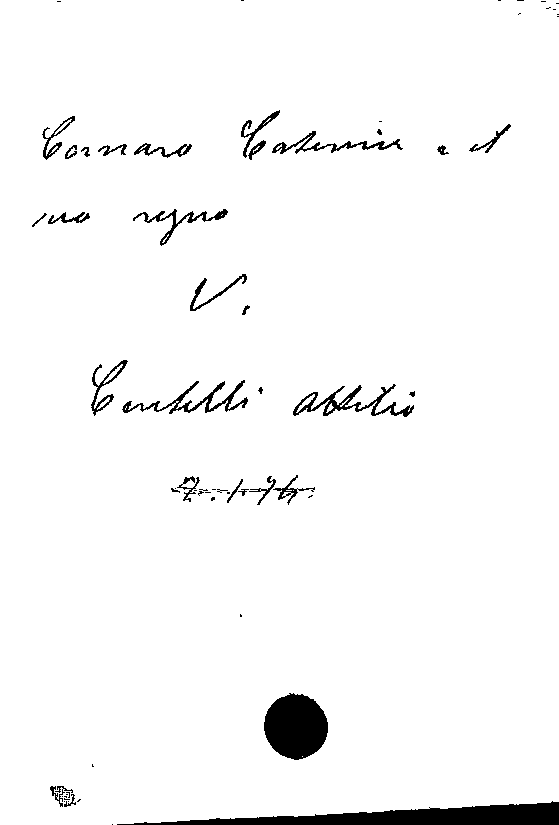 Cornaro Caterina e il
suo regno
V.
Centelli Attilio